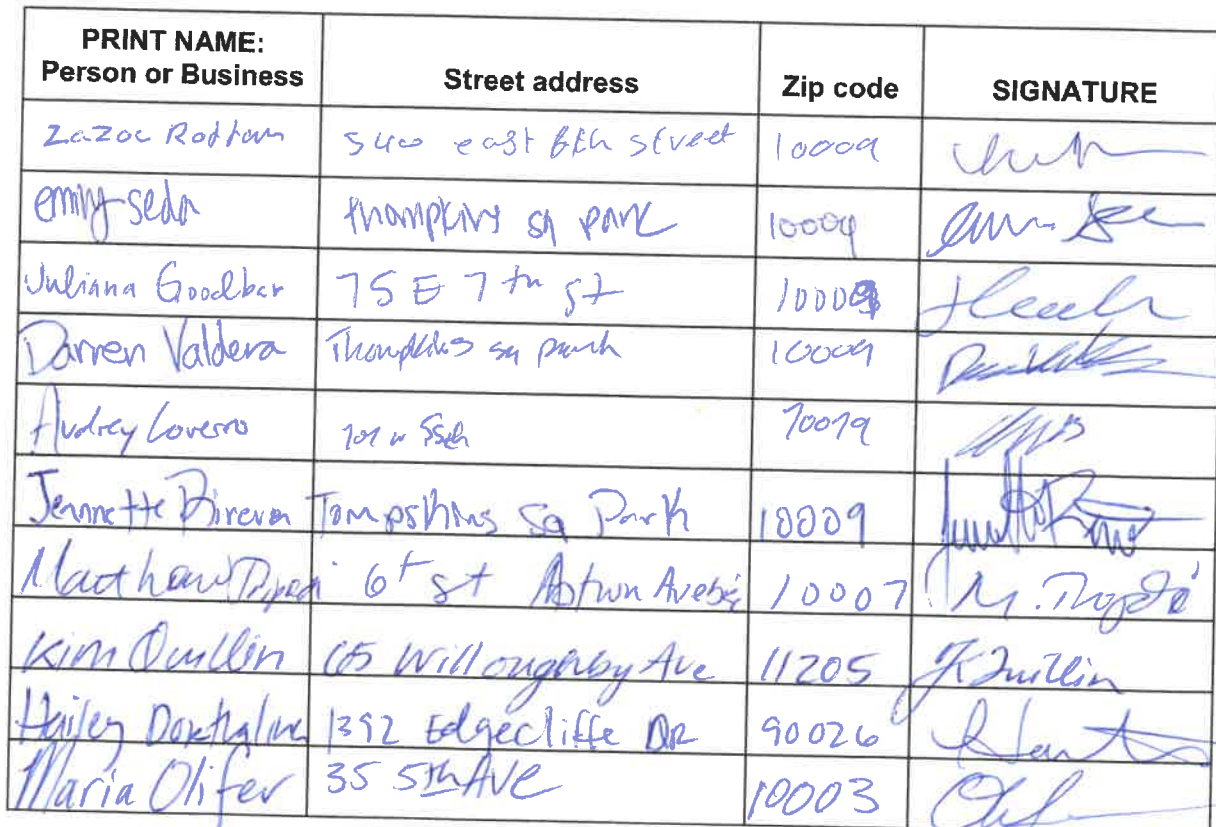 PRINT NAME:
Person or Business
Street address
Zip code
SIGNATURE
Zazoc Rottam 540 east 6th street 10009
emily seda thompkins sq park 10009
Juliana Goodbar 75 E 7th st 10009
Darren Valdera Thompkins sq park 10009
Audrey Loverro 101 w 55th 10019
Jennette Tompskins Sq Park 10009
Matthew 6t st 10007 M.
Kim Quillin 65 Willoughby Ave 11205 K Quillin
Hailey 1392 Edgecliffe DR 90026
Maria Olifer 35 5th AVE 10003